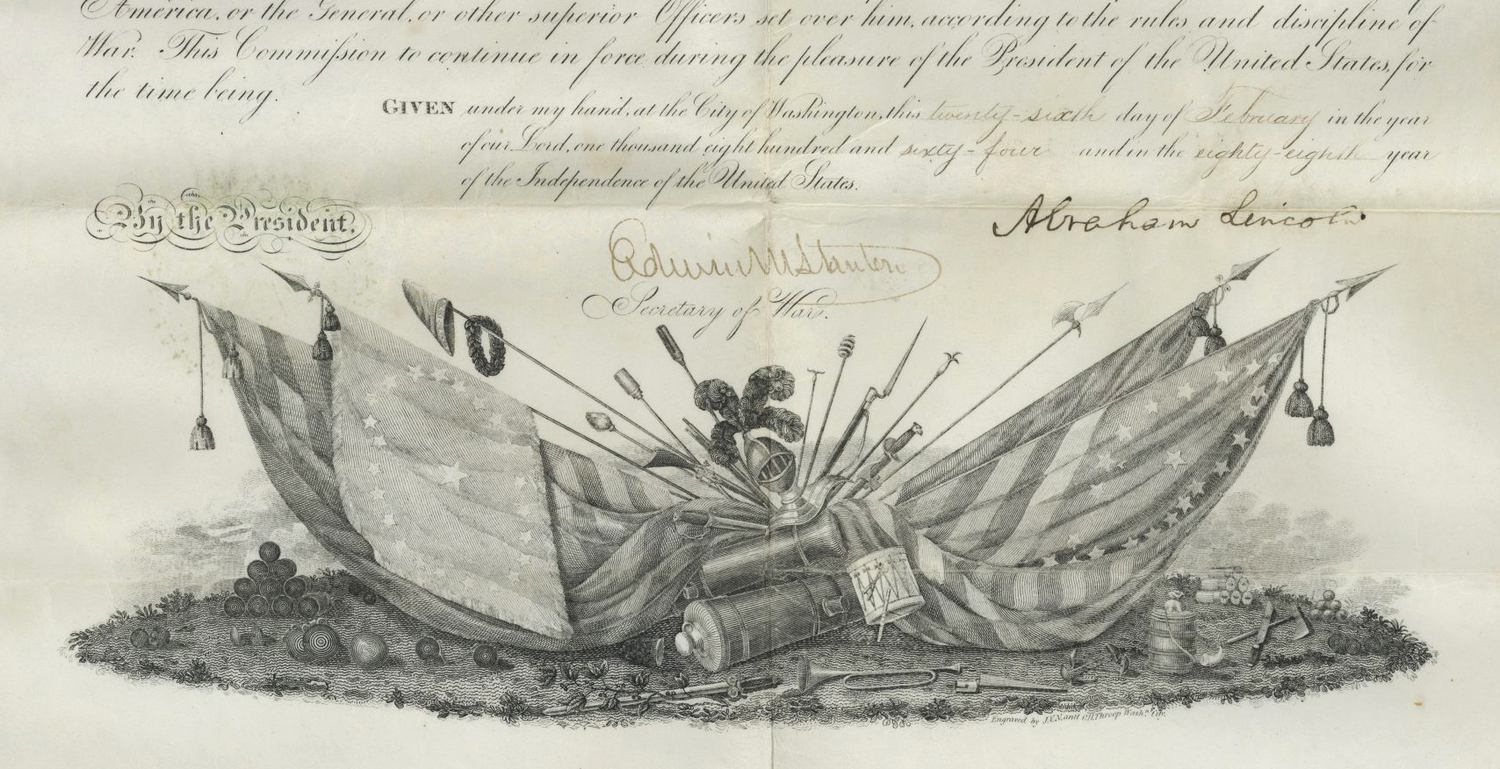 America, or the General, or other superior Officers set over him, according to the rules and discipline of
War. This Commission to continue in force during the pleasure of the President of the United States, for
the time being.
GIVEN under my hand, at the City of Washington, this twenty-sixth day of February in the year
of our Lord, one thousand eight hundred and sixty-four and in the eighty-eighth year
of the Independence of the United States.
By the President,
Abraham Lincoln
Edwin M Stanton
Secretary of War.
Engraved by J.V.N. and O.H. Throop Washn. City.